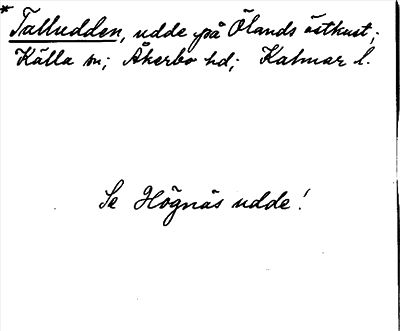 * Talludden, udde på Ölands östkust;
Källa sn; Åkerbo hd; Kalmar l.
Se Högnäs udde!